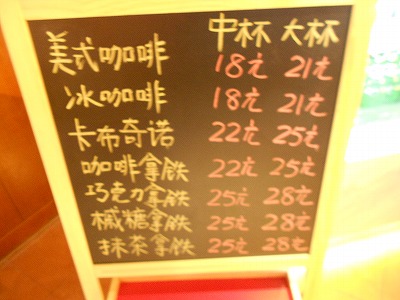 中杯 大杯
美式咖啡 18元 21元
冰咖啡 18元 21元
卡布奇诺 22元 25元
咖啡拿铁 22元 25元
巧克力拿铁 25元 28元
槭糖拿铁 25元 28元
抹茶拿铁 25元 28元